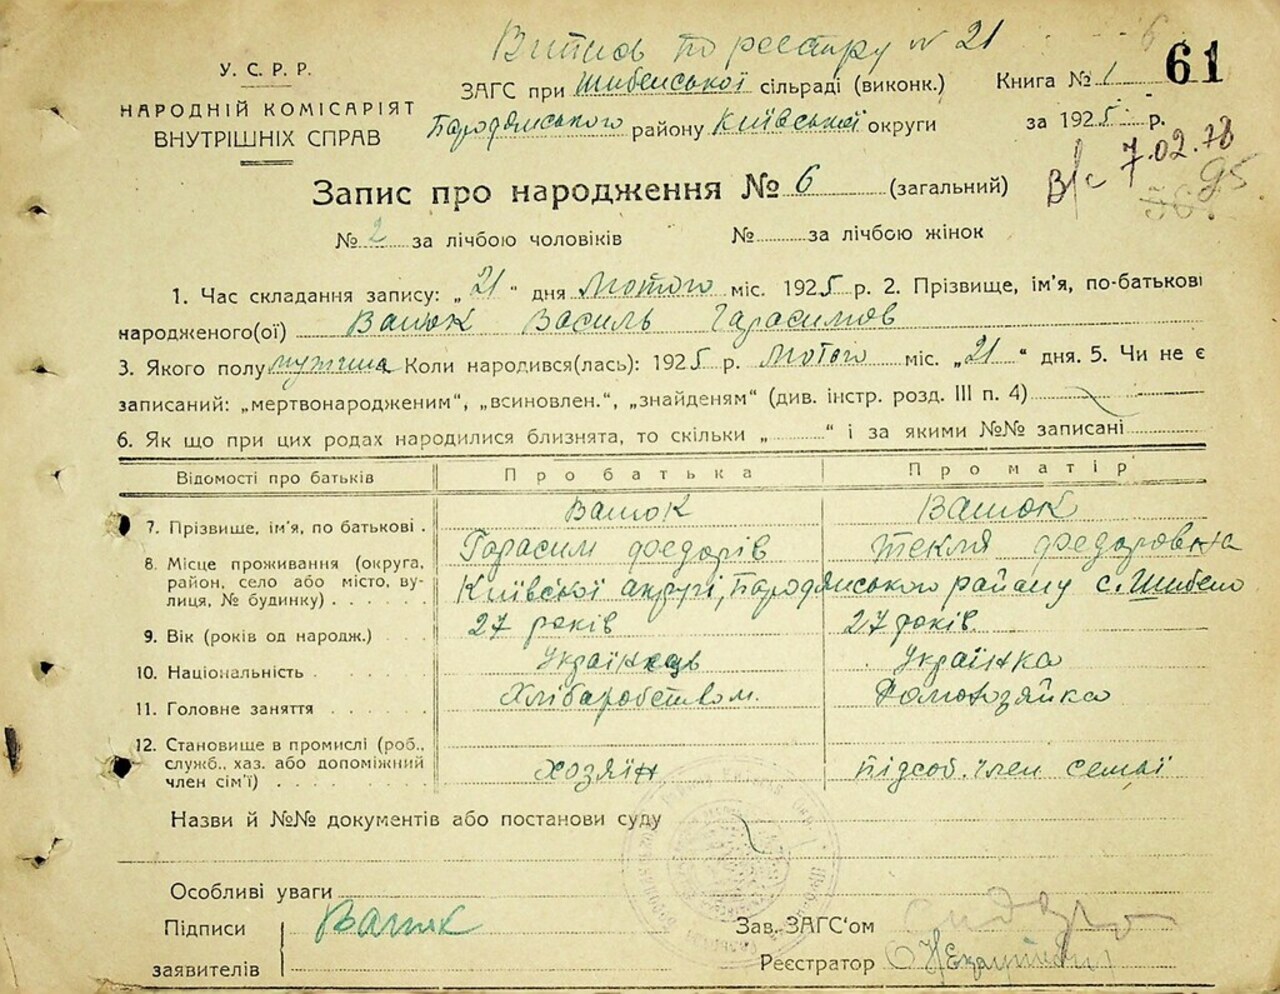 Витись по реєстру № 21
61
У. С. Р. Р.
НАРОДНІЙ КОМІСАРІЯТ
ВНУТРІШНІХ СПРАВ
ЗАГС при Шибенської сільраді (виконк.)
Книга № 1
Бородянського району Київської округи
за 1925 р.
7.02.78
95
Запис про народження № 6 (загальний)
№ 2 за лічбою чоловіків № за лічбою жінок
1. Час складання запису: „21“ дня Лютого міс. 1925 р. 2. Прізвище, ім'я, по-батькові
народженого(ої) Василь Гарасимов
3. Якого полу мужчина Коли народився(лась): 1925 р. Лютого міс. „21“ дня. 5. Чи не є
записаний: „мертвонародженим“, „всиновлен.“, „знайденям“ (див. інстр. розд. III п. 4)
6. Як що при цих родах народилися близнята, то скільки „ “ і за якими №№ записані
Відомості про батьків Про батька Про матір
7. Прізвище, ім'я, по батькові .
Гарасим Федорів Текля Федоровна
8. Місце проживання (округа,
район, село або місто, ву-
лиця, № будинку) . . . . . .
Київської округі, Бородянського району с. Шибено
9. Вік (років од народж.) 27 років 27 років
10. Національність Українець Українка
11. Головне заняття Хліборобством. Домохозяйка
12. Становище в промислі (роб.,
служб., хаз. або допоміжний
член сім'ї) хозяїн підсоб. член семьї
Назви й №№ документів або постанови суду
Особливі уваги
Підписи
заявителів
Зав. ЗАГС'ом
Реєстратор